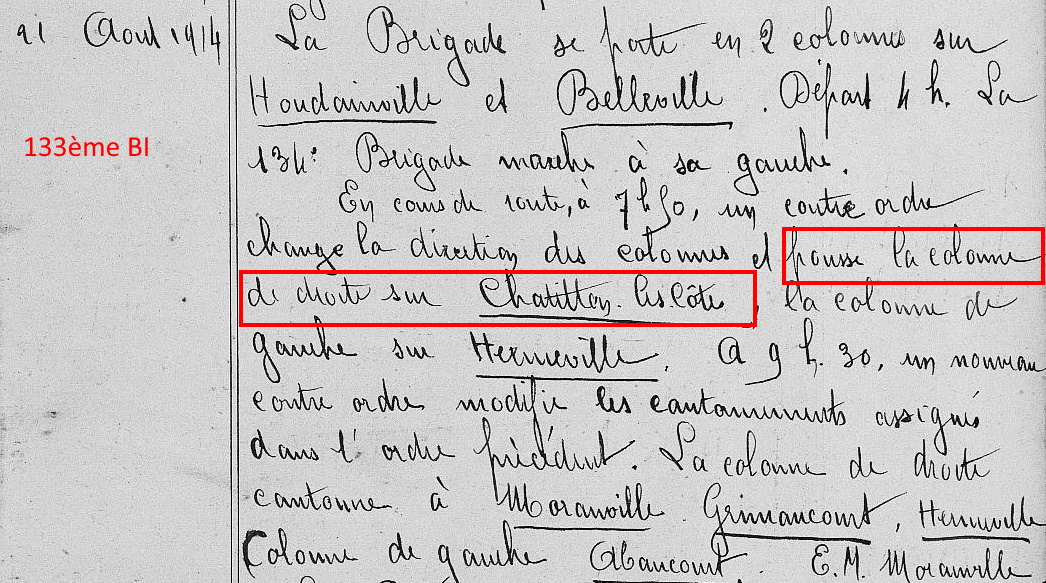 21 Août 1914 La Brigade se porte en 2 colonnes sur
Houdainville et Belleville. Départ 4 h. La
133ème BI
134e Brigade marche à sa gauche.
En cours de route, à 7 h 50, un contre ordre
change la direction des colonnes et pousse la colonne
de droite sur Chatillon-les-côtes, la colonne de
gauche sur Herméville. A 9 h. 30, un nouveau
contre ordre modifie les cantonnements assignés
dans l'ordre précédent. La colonne de droite
cantonne à Moranville Grimaucourt, Herméville
Colonne de gauche Abaucourt. E.M. Moranville